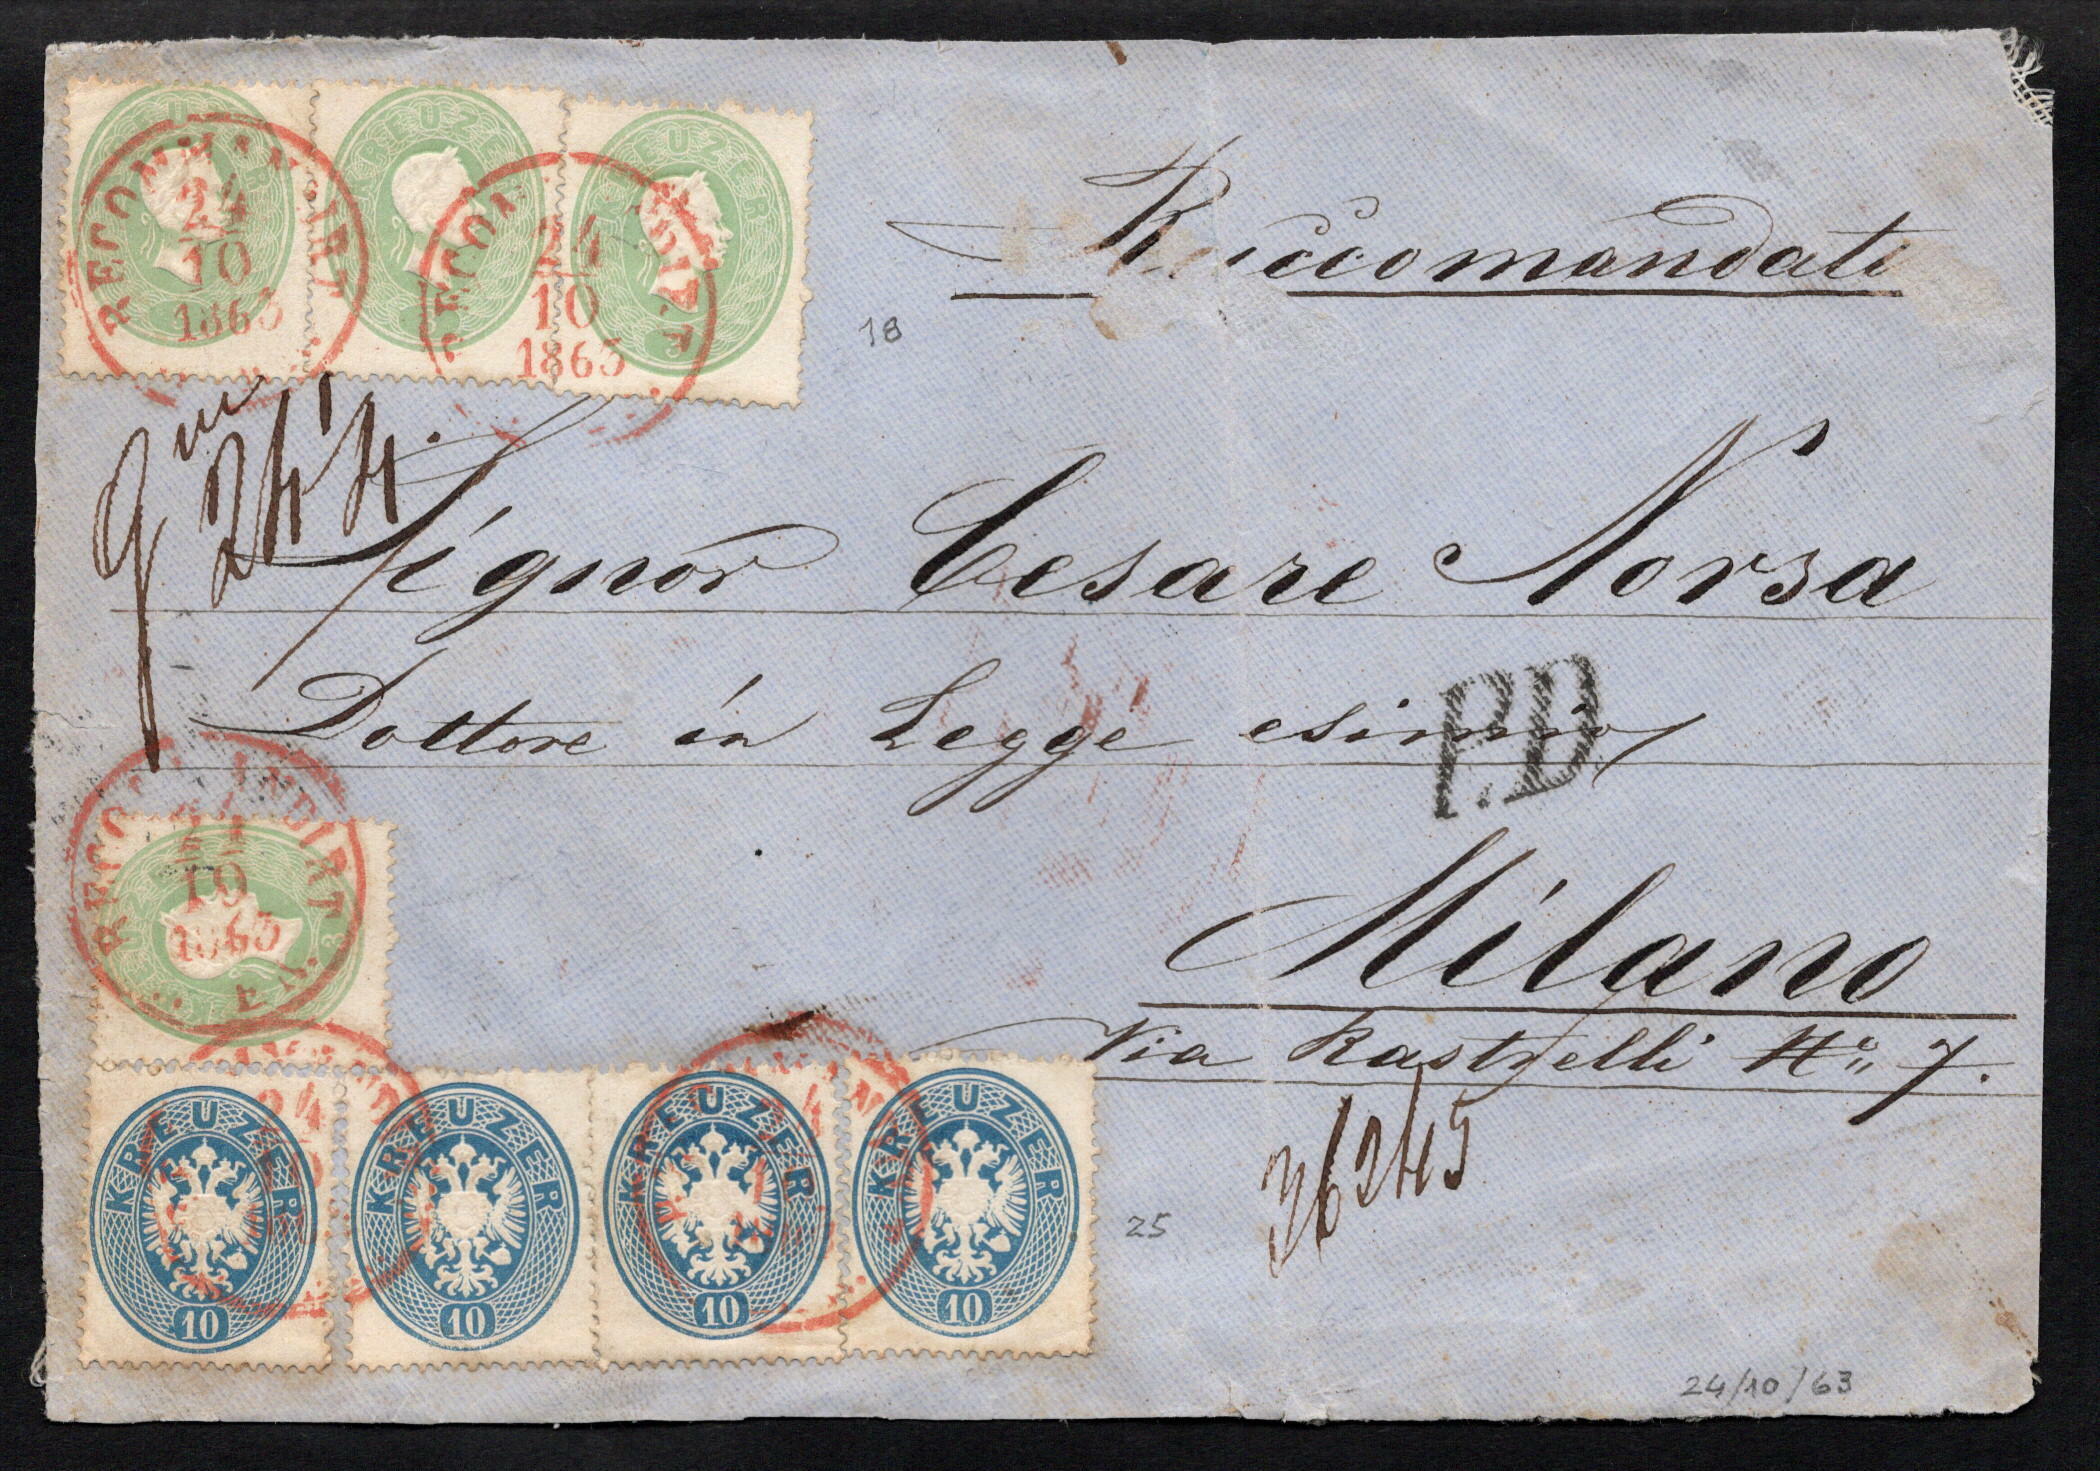 KREUZER KREUZER KREUZER
RECOMMANDIRT
24
10
1863
RECOMMANDIRT
24
10
1863
Raccomandata
18
Signor Cesare Norsa
Dottore in Legge esimio
P.D.
RECOMMANDIRT
24
10
1863
3
Milano
Via Rastrelli No 7.
36245
KREUZER 10
KREUZER 10
KREUZER 10
KREUZER 10
24
25
24/10/63